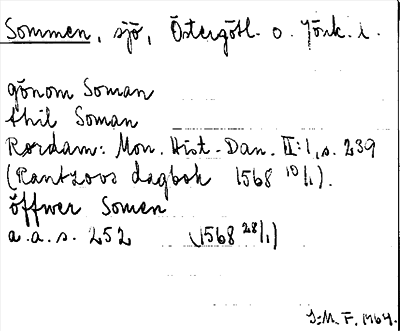 Sommen, sjö, Östergötl. o. Jönk. l.
gönom Soman
thil Soman
Rørdam: Mon. Hist. Dan. II:1, s. 239
(Rantzovs dagbok 1568 10/1).
öffwer Somen
a.a.s. 252 (1568 28/1)
F. 1964.